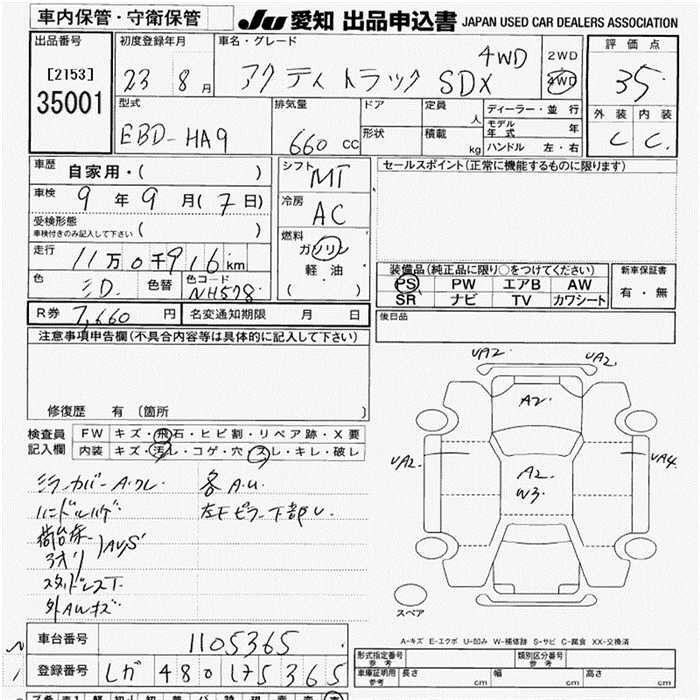 車内保管・守衛保管
JU 愛知 出品申込書 JAPAN USED CAR DEALERS ASSOCIATION
出品番号 初度登録年月 車名・グレード 評価点
[2153] 35001
23 8月
アクティトラック SDX 4WD
2WD
4WD
35
外装 内装
C C
型式 排気量 ドア 定員 ディーラー・並行
EBD-HA9 660cc 形状 積載 人 kg
モデル年式 年
ハンドル 左・右
車歴 自家用・( )
シフト MT
セールスポイント(正常に機能するものに限ります)
車検 9年9月(7日)
冷房 AC
受検形態 ( )
車検付きのみ記入して下さい
燃料 ガソリン
軽油
( )
走行 11万0千916km
色 色替 色コード NH578
装備品(純正品に限り○をつけてください)
PS PW エアB AW
SR ナビ TV カワシート
新車保証書
有・無
R券 7,660円 名変通知期限 月 日
後日品
注意事項申告欄(不具合内容等は具体的に記入して下さい)
修復歴 有 (箇所 )
検査員記入欄
FW キズ・飛石・ヒビ割・リペア跡・X要
内装 キズ・汚レ・コゲ・穴・スレ・キレ・破レ
ミラーカバーA.ワレ 各A.U
ハンドルハゲ 左下ピラー下部U
荷台床-アオリ AUS
スタッドレスT.
外AWキズ
UA2 UA2
A2
UA2 UA4
A2
W3
スペア
A-キズ E-エクボ U-凹み W-補修跡 S-サビ C-腐食 XX-交換済
車台番号 1105365
登録番号 480 5365
形式指定番号 参考 類別区分番号 参考
車庫証明用 参考 長さ cm 幅 cm 高さ cm